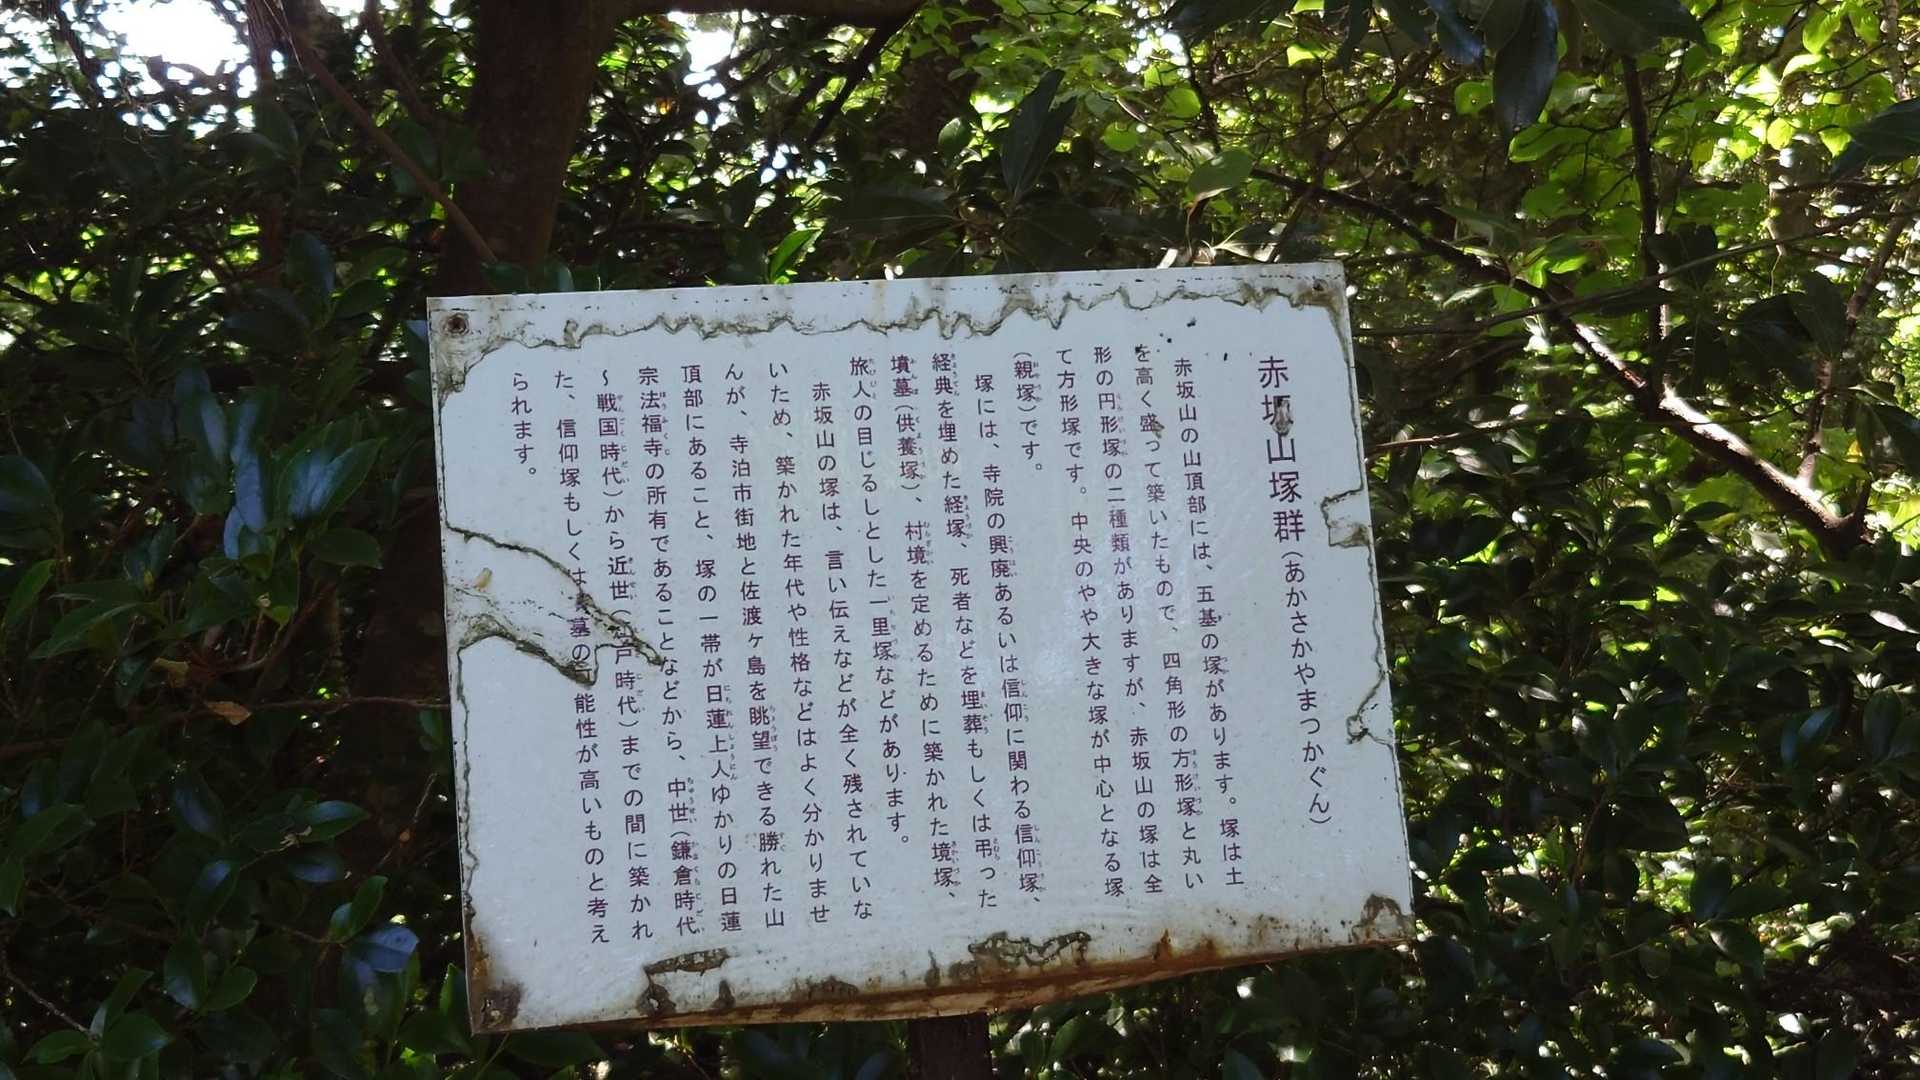 赤坂山塚群(あかさかやまつかぐん)
赤坂山の山頂部には、五基の塚があります。塚は土
を高く盛って築いたもので、四角形の方形塚と丸い
形の円形塚の二種類がありますが、赤坂山の塚は全
て方形塚です。中央のやや大きな塚が中心となる塚
(親塚)です。
塚には、寺院の興廃あるいは信仰に関わる信仰塚、
経典を埋めた経塚、死者などを埋葬もしくは弔った
墳墓(供養塚)、村境を定めるために築かれた境塚、
旅人の目じるしとした一里塚などがあります。
赤坂山の塚は、言い伝えなどが全く残されていな
いため、築かれた年代や性格などはよく分かりませ
んが、寺泊市街地と佐渡ヶ島を眺望できる勝れた山
頂部にあること、塚の一帯が日蓮上人ゆかりの日蓮
宗法福寺の所有であることなどから、中世(鎌倉時代
〜戦国時代)から近世(江戸時代)までの間に築かれ
た、信仰塚もしくは墓の可能性が高いものと考え
られます。